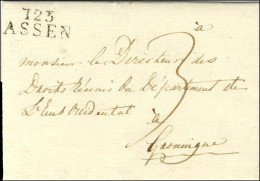 123
ASSEN
à
monsieur le Directeur des
Droits réunis du Département de
L'Ems Occidental
à
Groningue
3